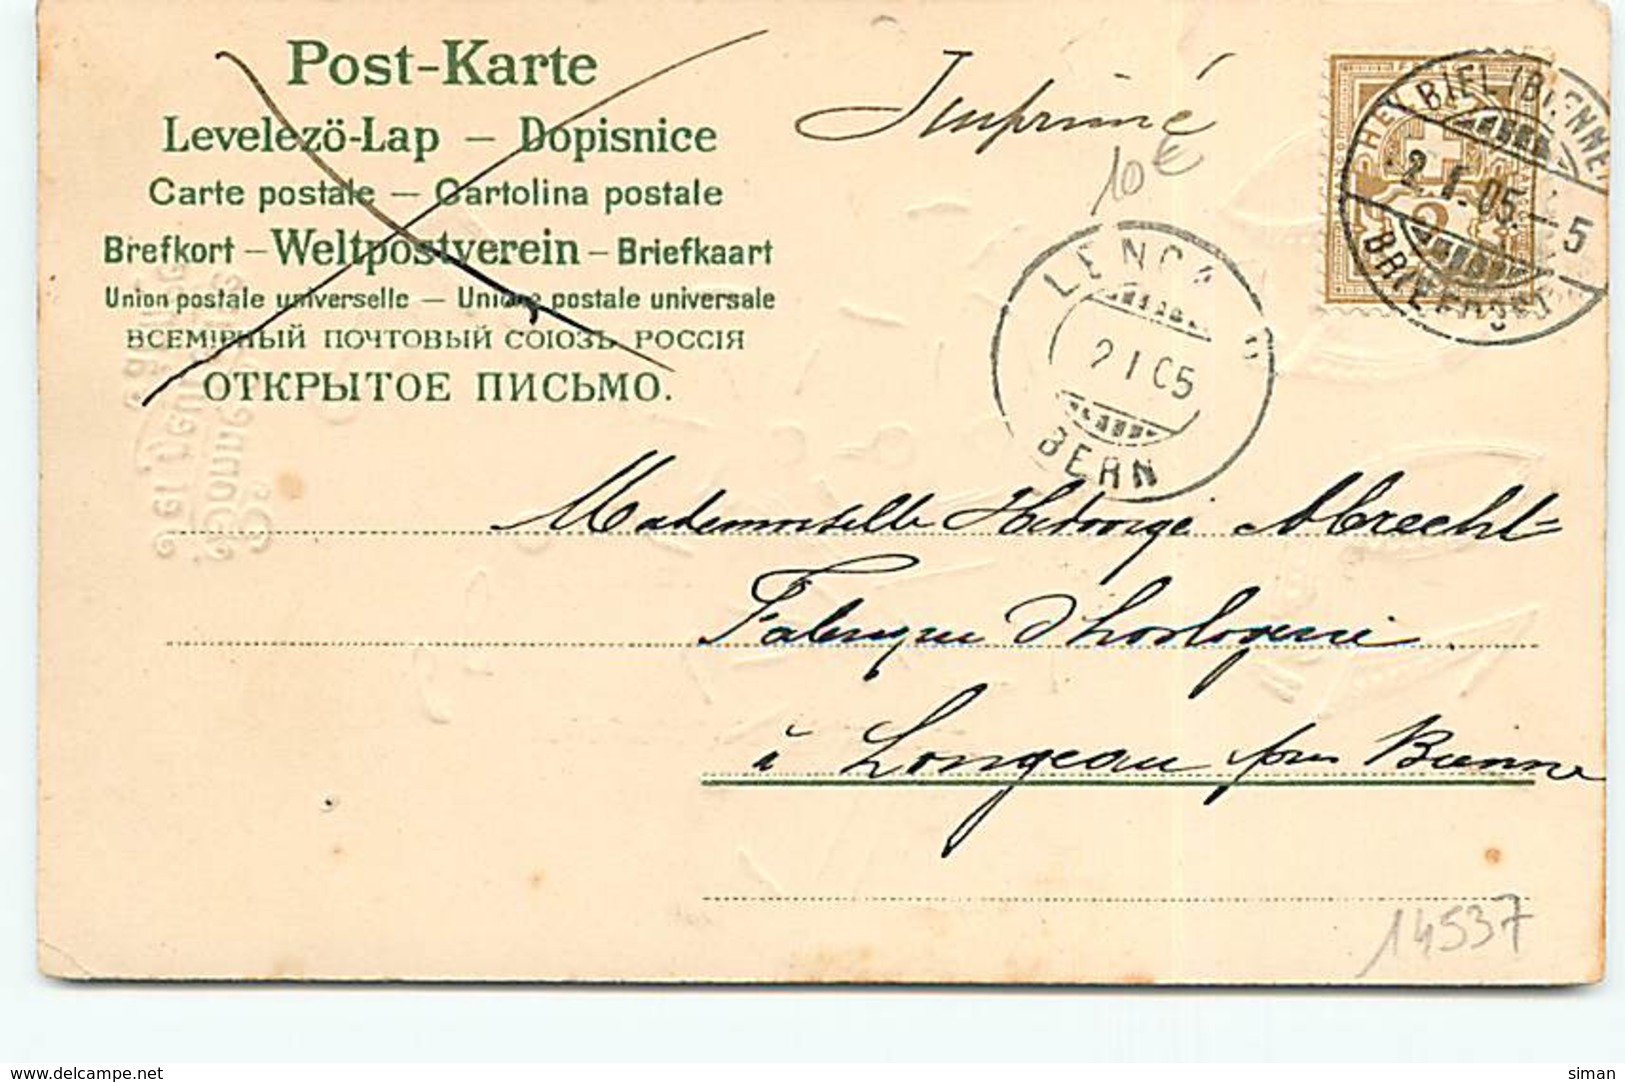 Post-Karte
Levelezö-Lap — Dopisnice
Carte postale — Cartolina postale
Brefkort — Weltpostverein — Briefkaart
Union postale universelle — Unione postale universale
ВСЕМІРНЫЙ ПОЧТОВЫЙ СОЮЗЪ РОССІЯ
ОТКРЫТОЕ ПИСЬМО.
Imprimé
10€
BIEL (BIENNE)
2.I.05.—5
BRIEFPOST
LENG
2 I 05
BERN
Mademoiselle Hedwige Abrecht=
Fabrique d'horlogerie
à Longeau près Bienne
14537
www.delcampe.net
siman